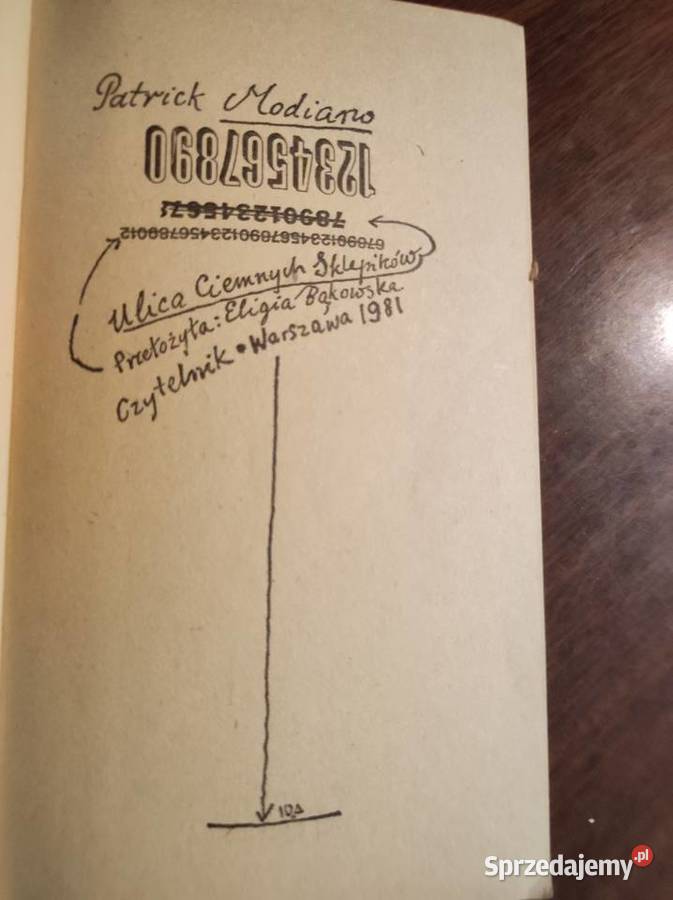 Patrick Modiano
1234567890
78901234567
678901234567890123456789012
Ulica Ciemnych Sklepików
Przełożyła: Eligia Bąkowska
Czytelnik • Warszawa 1981
Sprzedajemy.pl